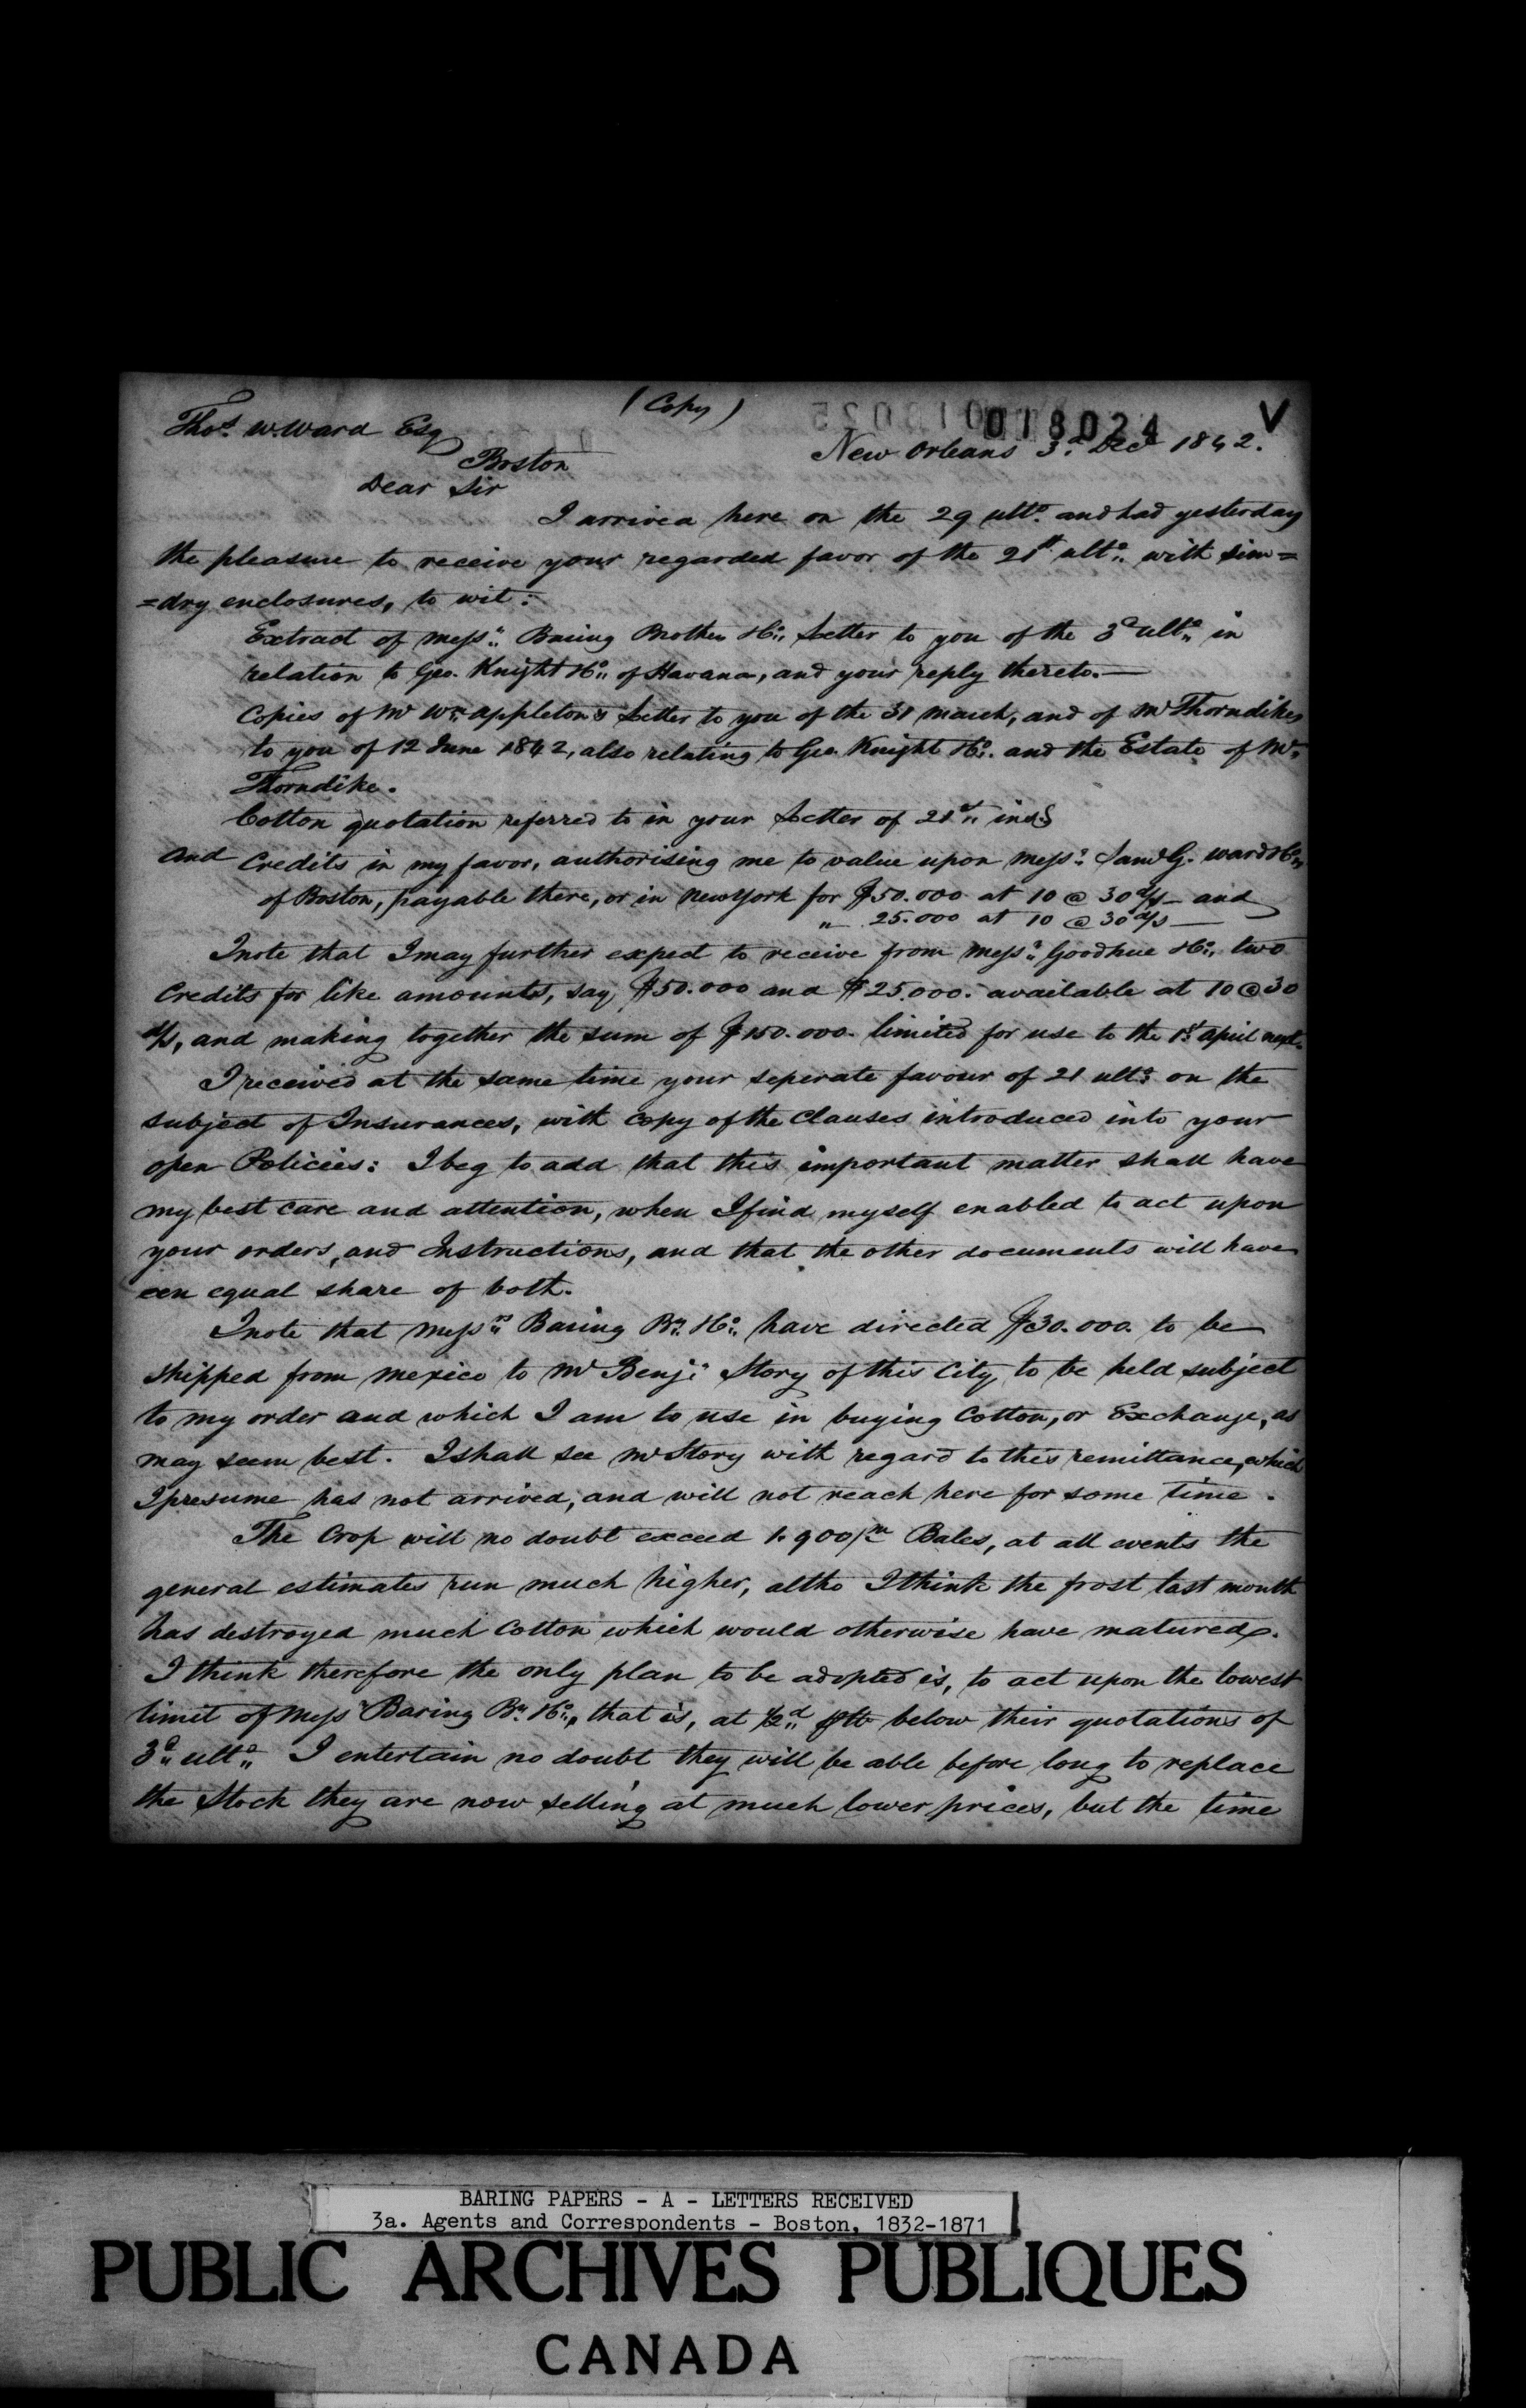 (Copy)
018024
V
Thos. W. Ward Esq
New Orleans 3d. Decr 1842.
Boston
Dear Sir
I arrived here on the 29 ulto. and had yesterday
the pleasure to receive your regarded favor of the 21st ulto. with sun=
=dry enclosures, to wit:
Extract of Messrs. Baring Brothers & Co. Letter to you of the 3d ulto. in
relation to Geo. Knight & Co. of Havana, and your reply thereto.—
Copies of Mr Wm. Appleton's Letter to you of the 31 March, and of Mr Thorndikes
to you of 12 June 1842, also relating to Geo. Knight & Co. and the Estate of Mr.
Thorndike.
Cotton quotation referred to in your Letter of 21st.
And Credits in my favor, authorising me to value upon Messrs. Saml G. Ward & Co.
of Boston, payable there, or in New York for $50.000 at 10 @ 30 d/s – and
" 25.000 at 10 @ 30 d/s —
I note that I may further expect to receive from Messrs. Goodhue & Co. two
Credits for like amounts, say $50.000 and $25.000. available at 10 @ 30
d/s, and making together the sum of $150.000. limited for use to the 1st. April next.
I received at the same time your seperate favour of 21 ulto. on the
subject of Insurances, with copy of the Clauses introduced into your
open Policies: I beg to add that this important matter shall have
my best care and attention, when I find myself enabled to act upon
your orders, and Instructions, and that the other documents will have
an equal share of both.
I note that Messrs. Baring Brs. & Co. have directed $30.000. to be
shipped from Mexico to Mr Benjn. Story of this City, to be held subject
to my order and which I am to use in buying Cotton, or Exchange, as
may seem best. I shall see Mr Story with regard to this remittance, which
I presume has not arrived, and will not reach here for some time.
The Crop will no doubt exceed 1.900/m Bales, at all events the
general estimates run much higher, altho I think the frost last month
has destroyed much Cotton which would otherwise have matured.
I think therefore the only plan to be adopted is, to act upon the lowest
limit of Messrs Baring Brs. & Co., that is, at 1/2d. p lb below their quotations of
3d. ulto. I entertain no doubt they will be able before long to replace
the Stock they are now selling at much lower prices, but the time
BARING PAPERS - A - LETTERS RECEIVED
3a. Agents and Correspondents - Boston, 1832-1871
PUBLIC ARCHIVES PUBLIQUES
CANADA